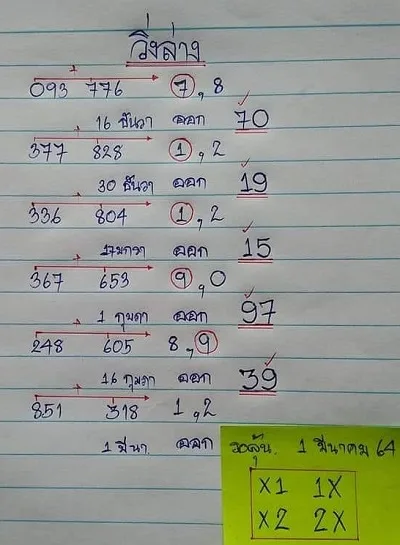 วิ่งล่าง
093 776 7, 8
16 ธันวา ออก 70
377 828 1, 2
30 ธันวา ออก 19
336 804 1, 2
17 มกรา ออก 15
367 653 9, 0
1 กุมภา ออก 97
248 605 8, 9
16 กุมภา ออก 39
851 318 1, 2
1 มีนา. ออก
รอลุ้น. 1 มีนาคม 64
X1 1X
X2 2X